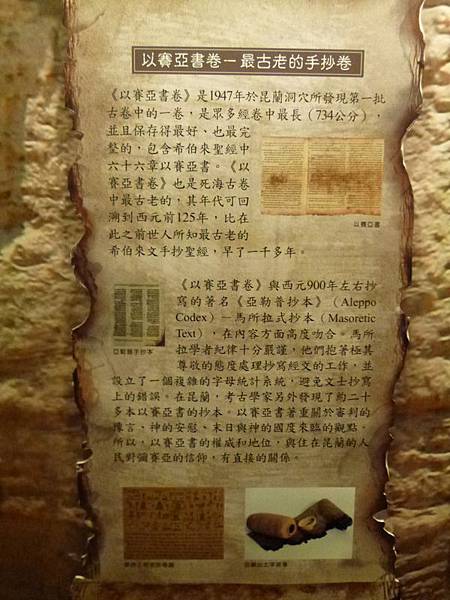 以賽亞書卷－最古老的手抄卷
《以賽亞書卷》是1947年於昆蘭洞穴所發現第一批
古卷中的一卷，是眾多經卷中最長（734公分），
並且保存得最好、也最完
整的，包含希伯來聖經中
六十六章以賽亞書。《以
賽亞書卷》也是死海古卷
中最古老的，其年代可回
溯到西元前125年，比在
此之前世人所知最古老的
希伯來文手抄聖經，早了一千多年。
以賽亞書
《以賽亞書卷》與西元900年左右抄
寫的著名《亞勒普抄本》（Aleppo
Codex）－馬所拉式抄本（Masoretic
Text），在內容方面高度吻合。馬所
拉學者紀律十分嚴謹，他們抱著極其
尊敬的態度處理抄寫經文的工作，並
設立了一個複雜的字母統計系統，避免文士抄寫
上的錯誤。在昆蘭，考古學家另外發現了約二十
多本以賽亞書的抄本。以賽亞書著重關於審判的
豫言、神的安慰、末日與神的國度來臨的觀點。
所以，以賽亞書的權威和地位，與住在昆蘭的人
民對彌賽亞的信仰，有直接的關係。
亞勒普手抄本